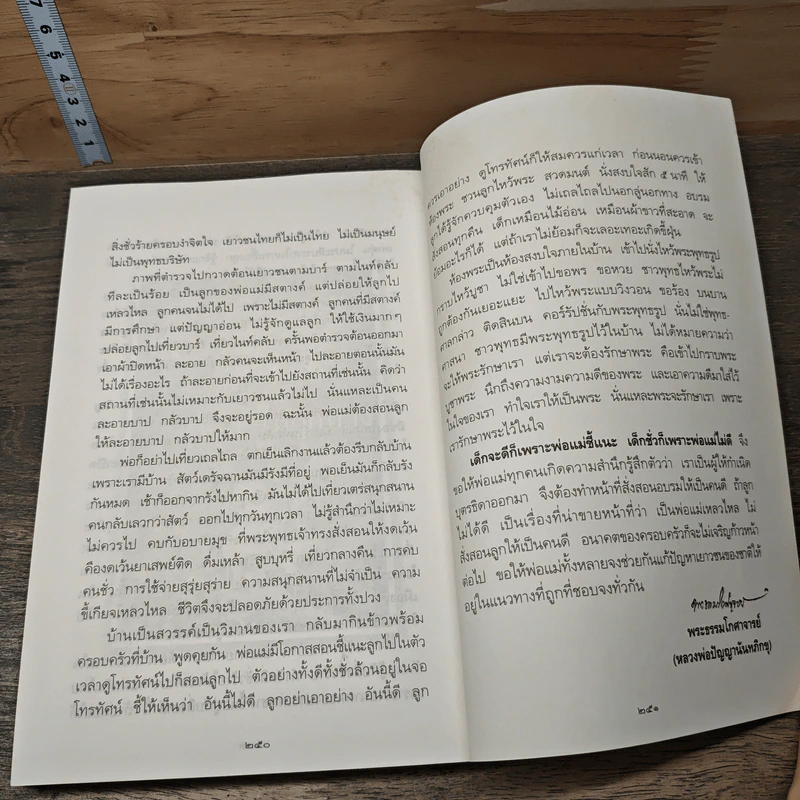 สิ่งชั่วร้ายครอบงำจิตใจ เยาวชนไทยก็ไม่เป็นไทย ไม่เป็นมนุษย์
ไม่เป็นพุทธบริษัท
ภาพที่ตำรวจไปกวาดต้อนเยาวชนตามบาร์ ตามไนท์คลับ
ทีละเป็นร้อย เป็นลูกของพ่อแม่มีสตางค์ แต่ปล่อยให้ลูกไป
เหลวไหล ลูกคนจนไม่ได้ไป เพราะไม่มีสตางค์ ลูกคนที่มีสตางค์
มีการศึกษา แต่ปัญญาอ่อน ไม่รู้จักดูแลลูก ให้ใช้เงินมากๆ
ปล่อยลูกไปเที่ยวบาร์ เที่ยวไนท์คลับ ครั้นพอตำรวจต้อนออกมา
เอาผ้าปิดหน้า ละอาย กลัวคนจะเห็นหน้า ไปละอายตอนนั้นมัน
ไม่ได้เรื่องอะไร ถ้าละอายก่อนที่จะเข้าไปยังสถานที่เช่นนั้น คิดว่า
สถานที่เช่นนั้นไม่เหมาะกับเยาวชนแล้วไม่ไป นั่นแหละเป็นคน
ละอายบาป กลัวบาป จึงจะอยู่รอด ฉะนั้น พ่อแม่ต้องสอนลูก
ให้ละอายบาป กลัวบาปให้มาก
พ่อก็อย่าไปเที่ยวเถลไถล ตกเย็นเลิกงานแล้วต้องรีบกลับบ้าน
เพราะเรามีบ้าน สัตว์เดรัจฉานมันมีรังมีที่อยู่ พอเย็นมันก็กลับรัง
กันหมด เช้าก็ออกจากรังไปหากิน มันไม่ได้ไปเที่ยวเตร่สนุกสนาน
คนกลับเลวกว่าสัตว์ ออกไปทุกวันทุกเวลา ไม่รู้สำนึกว่าไม่เหมาะ
ไม่ควรไป คบกับอบายมุข ที่พระพุทธเจ้าทรงสั่งสอนให้งดเว้น
คืองดเว้นยาเสพย์ติด ดื่มเหล้า สูบบุหรี่ เที่ยวกลางคืน การคบ
คนชั่ว การใช้จ่ายสุรุ่ยสุร่าย ความสนุกสนานที่ไม่จำเป็น ความ
ขี้เกียจเหลวไหล ชีวิตจึงจะปลอดภัยด้วยประการทั้งปวง
บ้านเป็นสวรรค์เป็นวิมานของเรา กลับมากินข้าวพร้อม
ครอบครัวที่บ้าน พูดคุยกัน พ่อแม่มีโอกาสสอนชี้แนะลูกไปในตัว
เวลาดูโทรทัศน์ไปก็สอนลูกไป ตัวอย่างทั้งดีทั้งชั่วล้วนอยู่ในจอ
โทรทัศน์ ชี้ให้เห็นว่า อันนี้ไม่ดี ลูกอย่าเอาอย่าง อันนี้ดี ลูก
๒๕๐
ควรเอาอย่าง ดูโทรทัศน์ก็ให้สมควรแก่เวลา ก่อนนอนควรเข้า
ห้องพระ ชวนลูกไหว้พระ สวดมนต์ นั่งสงบใจสัก ๕ นาที ให้
ลูกได้รู้จักควบคุมตัวเอง ไม่เถลไถลไปนอกลู่นอกทาง อบรม
สั่งสอนทุกคืน เด็กเหมือนไม้อ่อน เหมือนผ้าขาวที่สะอาด จะ
ย้อมอะไรก็ได้ แต่ถ้าเราไม่ย้อมก็จะเลอะเทอะเกิดขี้ฝุ่น
ห้องพระเป็นห้องสงบใจภายในบ้าน เข้าไปนั่งไหว้พระพุทธรูป
กราบไหว้บูชา ไม่ใช่เข้าไปขอพร ขอหวย ชาวพุทธไหว้พระไม่
ถูกต้องกันเยอะแยะ ไปไหว้พระแบบวิงวอน ขอร้อง บนบาน
ศาลกล่าว ติดสินบน คอร์รัปชั่นกับพระพุทธรูป นั่นไม่ใช่พุทธ-
ศาสนา ชาวพุทธมีพระพุทธรูปไว้ในบ้าน ไม่ได้หมายความว่า
จะให้พระรักษาเรา แต่เราจะต้องรักษาพระ คือเข้าไปกราบพระ
บูชาพระ นึกถึงความงามความดีของพระ และเอาความดีมาใส่ไว้
ในใจของเรา ทำใจเราให้เป็นพระ นั่นแหละพระจะรักษาเรา เพราะ
เรารักษาพระไว้ในใจ
เด็กจะดีก็เพราะพ่อแม่ชี้แนะ เด็กชั่วก็เพราะพ่อแม่ไม่ดี จึง
ขอให้พ่อแม่ทุกคนเกิดความสำนึกรู้สึกตัวว่า เราเป็นผู้ให้กำเนิด
บุตรธิดาออกมา จึงต้องทำหน้าที่สั่งสอนอบรมให้เป็นคนดี ถ้าลูก
ไม่ได้ดี เป็นเรื่องที่น่าขายหน้าที่ว่า เป็นพ่อแม่เหลวไหล ไม่
สั่งสอนลูกให้เป็นคนดี อนาคตของครอบครัวก็จะไม่เจริญก้าวหน้า
ต่อไป ขอให้พ่อแม่ทั้งหลายจงช่วยกันแก้ปัญหาเยาวชนของชาติให้
อยู่ในแนวทางที่ถูกที่ชอบจงทั่วกัน
พระธรรมโกศาจารย์
(หลวงพ่อปัญญานันทภิกขุ)
๒๕๑
7 6 5 4 3 2 1